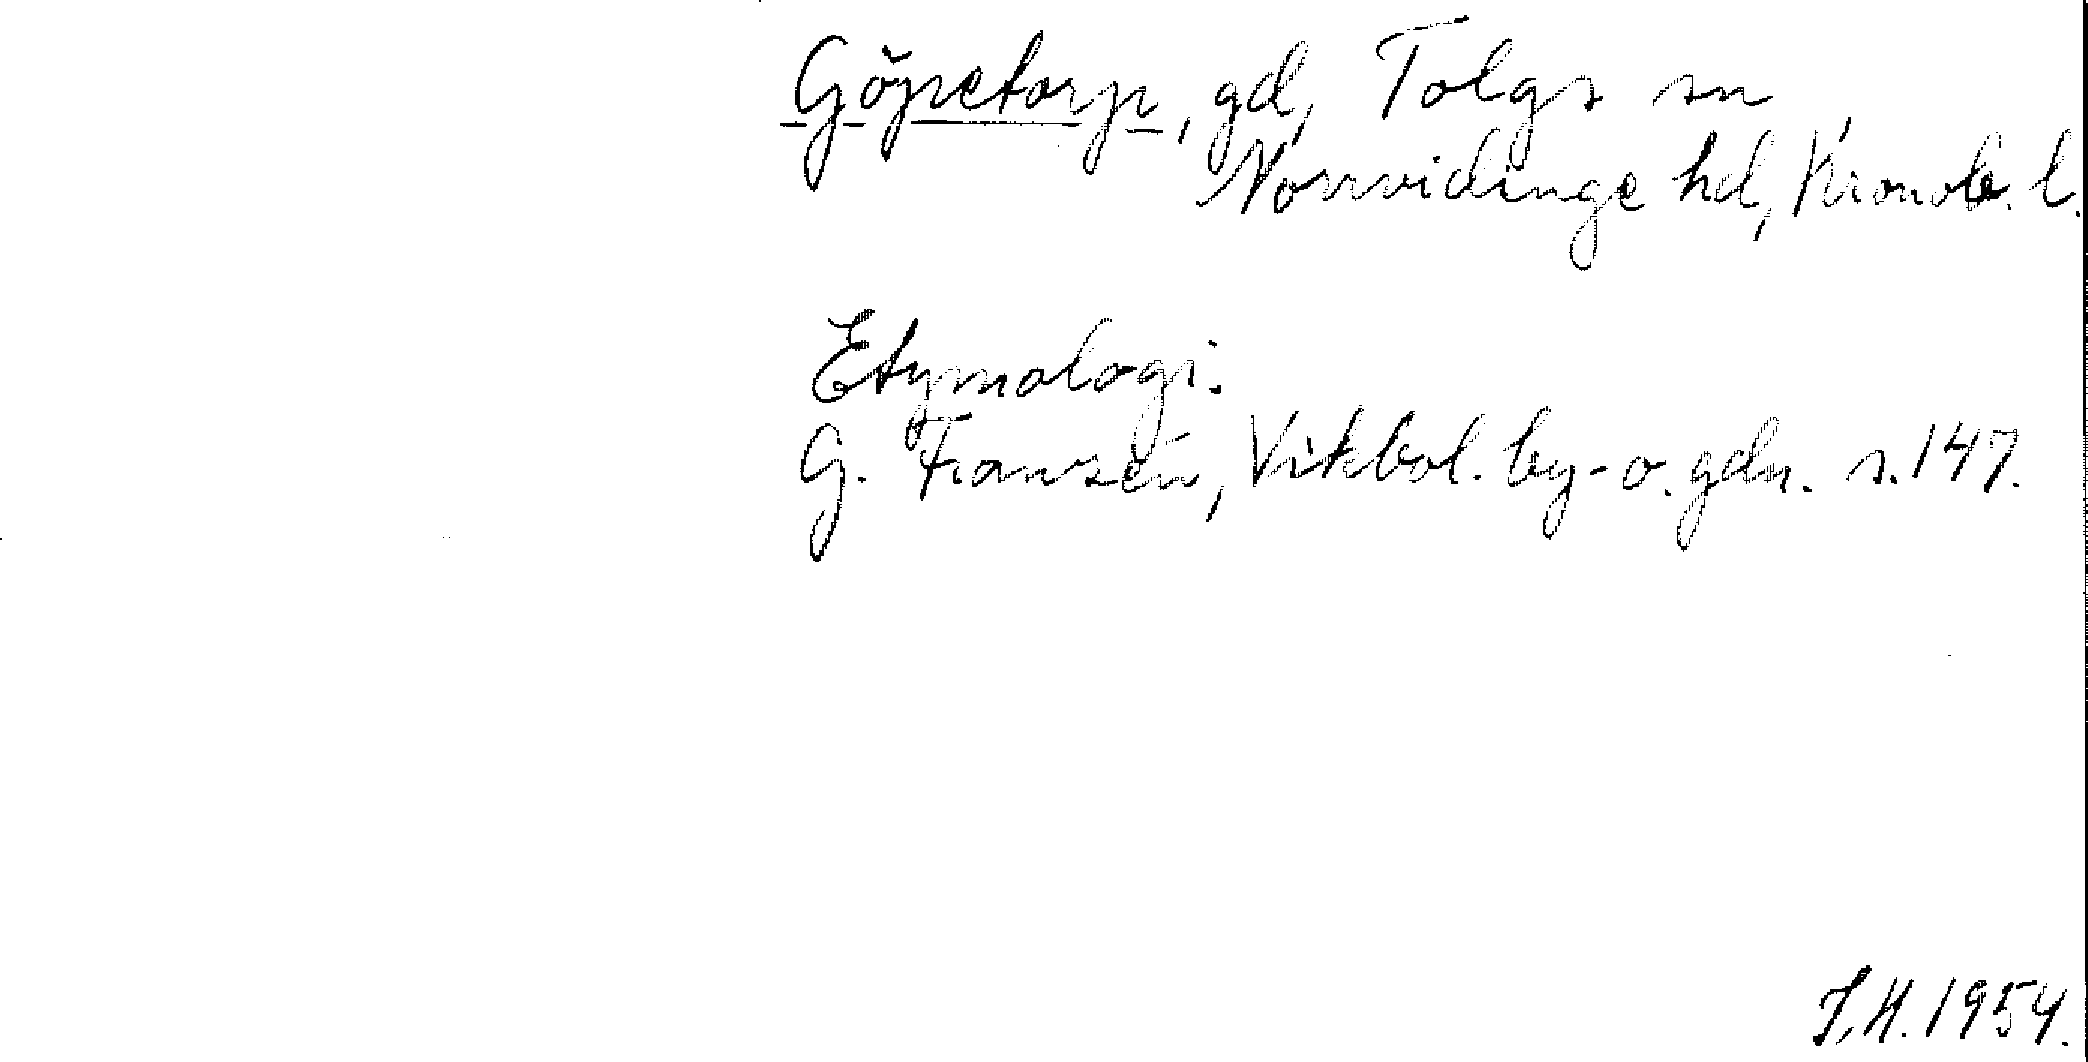 Göpetorp, gd, Tolgs sn
Norrvidinge hd, Kronob. l.
Etymologi:
G. Franzén, Vikbol. by- o. gdn. s. 147.
I.H. 1954.